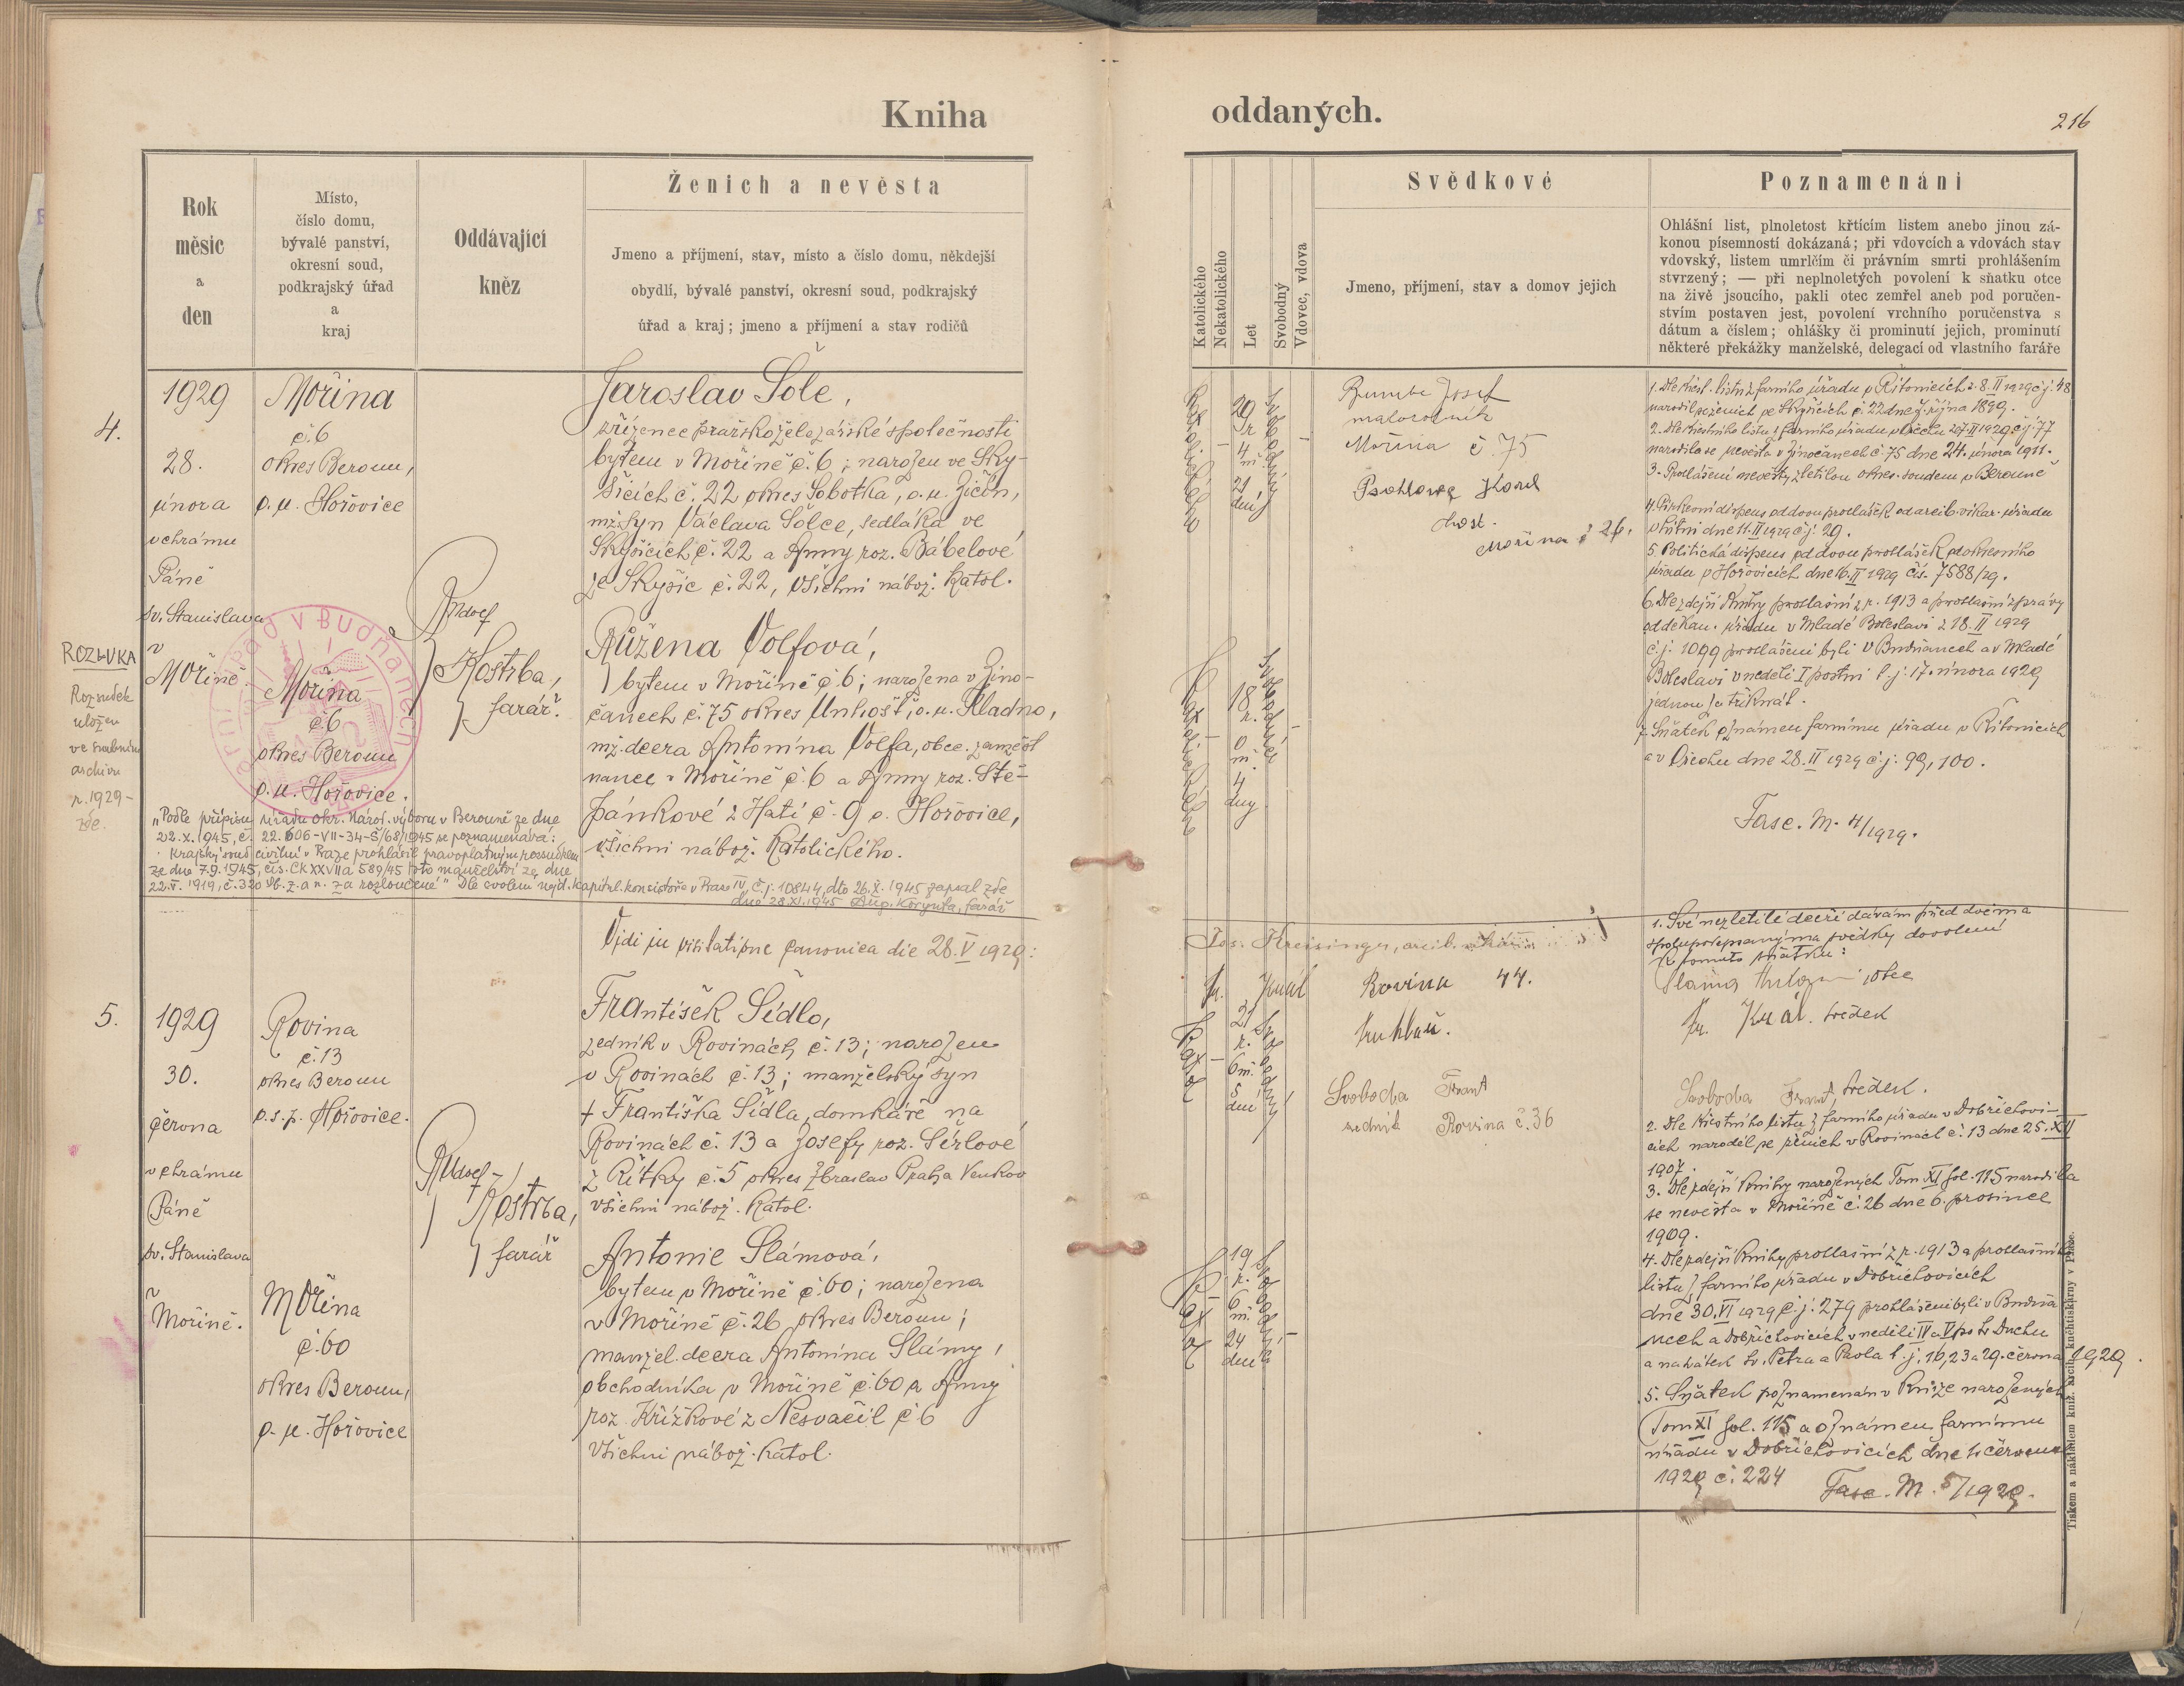 Kniha
oddaných.
216
Rok
měsíc
a
den
Místo,
číslo domu,
bývalé panství,
okresní soud,
podkrajský úřad
a
kraj
Oddávající
kněz
Ženich a nevěsta
Jmeno a příjmení, stav, místo a číslo domu, někdejší
obydlí, bývalé panství, okresní soud, podkrajský
úřad a kraj; jmeno a příjmení a stav rodičů
Katolického
Nekatolického
Let
Svobodný
Vdovec, vdova
Svědkové
Jmeno, příjmení, stav a domov jejich
Poznamenání
Ohlášní list, plnoletost křtícím listem anebo jinou zá-
konou písemností dokázaná; při vdovcích a vdovách stav
vdovský, listem umrlčím či právním smrti prohlášením
stvrzený; — při neplnoletých povolení k sňatku otce
na živě jsoucího, pakli otec zemřel aneb pod poručen-
stvím postaven jest, povolení vrchního poručenstva s
dátum a číslem; ohlášky či prominutí jejich, prominutí
některé překážky manželské, delegací od vlastního faráře
4.
1929
28.
února
v chrámu
Páně
sv. Stanislava
v
Mořině.
ROZLUKA
Rozsudek
uložen
ve
archivu
r. 1929 –
zde.
Mořina
č. 6
okres Beroun,
o. u. Hořovice
Mořina
č. 6
okres Beroun
o. u. Hořovice.
V BUDŇANECH
Rudolf
Kostrba,
farář.
Jaroslav Šolc,
zřízenec pražskoželezářské společnosti
bytem v Mořině č. 6; narozen ve Sky-
šicích č. 22 okres Sobotka, o. u. Jičín,
mž. syn Václava Šolce, sedláka ve
Skyšicích č. 22 a Anny roz. Bábelové
ze Skyšic č. 22, všichni nábož. katol.
Růžena Volfová,
bytem v Mořině č. 6; narozena v Jino-
čanech č. 75 okres Unhošť, o. u. Kladno,
mž. dcera Antonína Volfa, obec. zaměst
nance v Mořině č. 6 a Anny roz. Ště-
pánkové z Hatí č. 9 o. Hořovice,
všichni nábož. katolického.
„Podle přípisu úřadu okr. národ. výboru v Berouně ze dne
22. X. 1945, č. 22.606-VII-34-Š/68/1945 se poznamenává:
Krajský soud civilní v Praze prohlásil pravoplatným rozsudkem
ze dne 7. 9. 1945, čís. Ck XXVIIa 589/45 toto manželství ze dne
22. V. 1919, č. 320 Sb. z. a n. za rozloučené" Dle svolení nejd. kapitul. konsistoře v Praze IV, č. j. 10844, dto 26. X. 1945 zapsal zde
dne 28. XI. 1945 Aug. Korynta, farář
Vidi in visitatione canonica die 28. V 1929:
Jos. Kreisinger, arcib. vikář
Katolické
29
r.
4
m.
21
dní
Svobodný
Katolické
18
r.
0
m.
4
dny
Josef
Mořina č. 75
Karel
host.
Mořina č 26.
1. Dle křest. listu z farního úřadu v Řitonicích z 8. II 1929 č. j. 48
narodil se ženich ve Skyšicích č. 22 dne 7. října 1899.
2. Dle křestního listu z farního úřadu v Ořechu 27. II 1929 č. j. 77
narodila se nevěsta v Jinočanech č. 75 dne 24. února 1911.
3. Prohlášení nevěsty zletilou okres. soudem v Berouně
4. Církevní dispens od dvou prohlášek od arcib. vikar. úřadu
dne 11. II 1929 č. j. 29.
5. Politická dispens od dvou prohlášek od okresního
úřadu v Hořovicích dne 16. II 1929 čís. 7588/29.
6. Dle zdejší knihy prohlášní z r. 1913 a prohlašní zprávy
od děkan. úřadu v Mladé Boleslavi z 18. II 1929
č. j. 1099 prohlášeni byli v Budňanech a v Mladé
Boleslavi v neděli I postní t. j. 17. února 1929
jednou za třikrát.
7. Sňatek oznámen farnímu úřadu v Řitonicích
a v Ořechu dne 28. II 1929 č. j. 99, 100.
Fasc. M. 4/1929.
5.
1929
30.
června
v chrámu
Páně
sv. Stanislava
v
Mořině.
Rovina
č. 13
okres Beroun
o. s. p. Hořovice.
Mořina
č. 60
okres Beroun,
o. u. Hořovice
Rudolf
Kostrba,
farář
František Šídlo,
zedník v Rovinách č. 13; narozen
v Rovinách č. 13; manželský syn
† Františka Šídla, domkáře na
Rovinách č. 13 a Josefy roz. Šérlové
z Řitky č. 5 okres Zbraslav Praha Venkov
všichni nábož. katol.
Antonie Slámová,
bytem v Mořině č. 60; narozena
v Mořině č. 26 okres Beroun;
manžel. dcera Antonína Slámy,
obchodníka v Mořině č. 60 a Anny
roz. Křížkové z Nesvačil č 6
všichni nábož. katol.
21
r.
6 m.
5
dní
19
r.
6
m.
24
dní
Fr. Král Rovina 44.
Svoboda Frant
zedník Rovina č. 36
1. Své nezletilé dceři dávám před dvěma
spolupodepsanýma svědky dovolení
k tomuto sňatku:
Sláma Antonín otec
Fr. Král. svědek
Svoboda Frant, svědek.
2. Dle křestního listu z farního úřadu v Dobřichovi-
cích narodil se ženich v Rovinách č. 13 dne 25. XII
1907.
3. Dle zdejší knihy narozených Tom XI fol. 115 narodila
se nevěsta v Mořině č. 26 dne 6. prosince
1909.
4. Dle zdejší knihy prohlašní z r. 1913 a prohlašního
listu z farního úřadu v Dobřichovicích
dne 30. VI 1929 č. j. 279 prohlášeni byli v Budňa
nech a Dobřichovicích v neděli IV a V po sv Duchu
a na svátek sv. Petra a Pavla t. j. 16, 23 a 29. června 1929.
5. Sňatek poznamenán v knize narozených
Tom XI fol. 115 a oznámen farnímu
úřadu v Dobřichovicích dne
1929 č. 224
Fasc. M. 5/1929.
Tiskem a nákladem kníž. arcib. knihtiskárny v Praze.